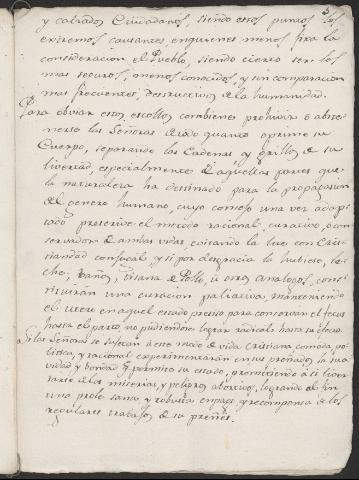 y callados Ciudadanos, siendo estos puntos los
extremos causantes en quienes menos fixa la
consideracion el Pueblo, siendo cierto ser los
mas seguros, menos conocidos, y sin comparacion
mas frecuentes, destructivos de la humanidad.
Para obviar estos escollos combiene prohivir o abso-
mente las Señoras de todo quanto oprime su
Cuerpo, separando las Cadenas, y grillos de su
livertad, especialmente de aquellas partes que
la naturaleza ha destinado para la propagacion
del genero humano, cuyo consejo una vez adap-
tado prescrive el metodo racional curativo, con
servador de ambas vidas evitando la lue con Cris-
tiandad conjucal, y si por desgracia la hubiese, le-
che, vaños, tisana de Pollo, u otros analogos, cons-
tituirán una curacion paliativa, manteniendo
el utero en aquel estado preciso para conservar el fetus
hasta el parto, no pudiendose lograr radical hasta su efecto.
Si las Señoras se sujetan a este modo de vida Cristiana comoda, po-
litica, y racional experimentarán en sus preñados la sua-
vidad y bondad q.e permite su estado, prometiendo a si liver-
tarse de las miserias, y peligros abortivos, logrando al fin
una prole sana, y robusta en pago, y recompensa de los
regulares trabajos de su preñes.